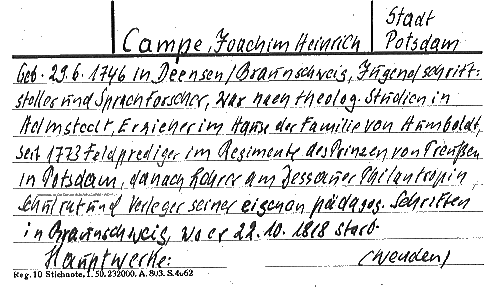 Campe, Joachim Heinrich
Stadt
Potsdam
Geb. 29.6.1746 in Deensen/Braunschweig, Jugendschrift-
steller und Sprachforscher, war nach theolog. Studien in
Helmstedt, Erzieher im Hause der Familie von Humboldt,
seit 1773 Feldprediger im Regimente des Prinzen von Preußen
in Potsdam, danach Lehrer am Dessauer Philantropin,
Schulrat und Verleger seiner eigenen pädagog. Schriften
in Braunschweig, wo er 22.10.1818 starb.
Hauptwerke: (wenden)
Reg. 10 Stichnote. 1. 50. 232000. A. 803. S. 4662